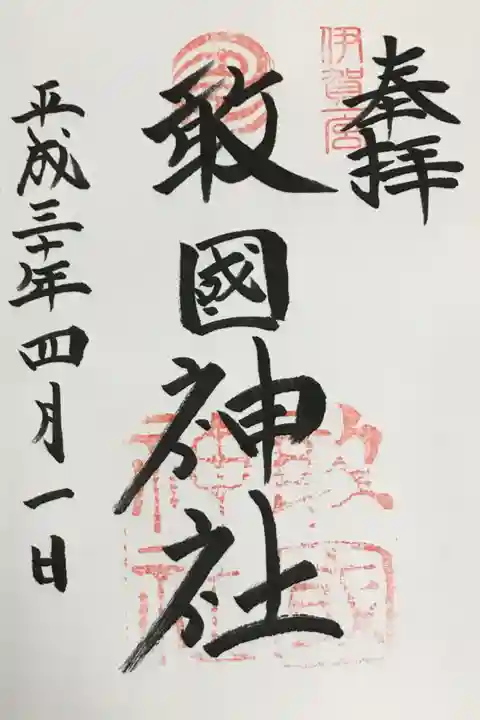 奉拝
伊賀一宮
敢國神社
敢國神社
平成三十年四月一日